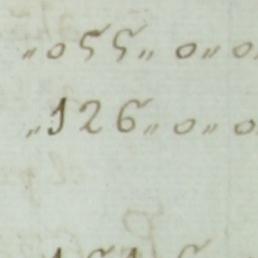 „055„ 0„ 0
„126„ 0„ 0